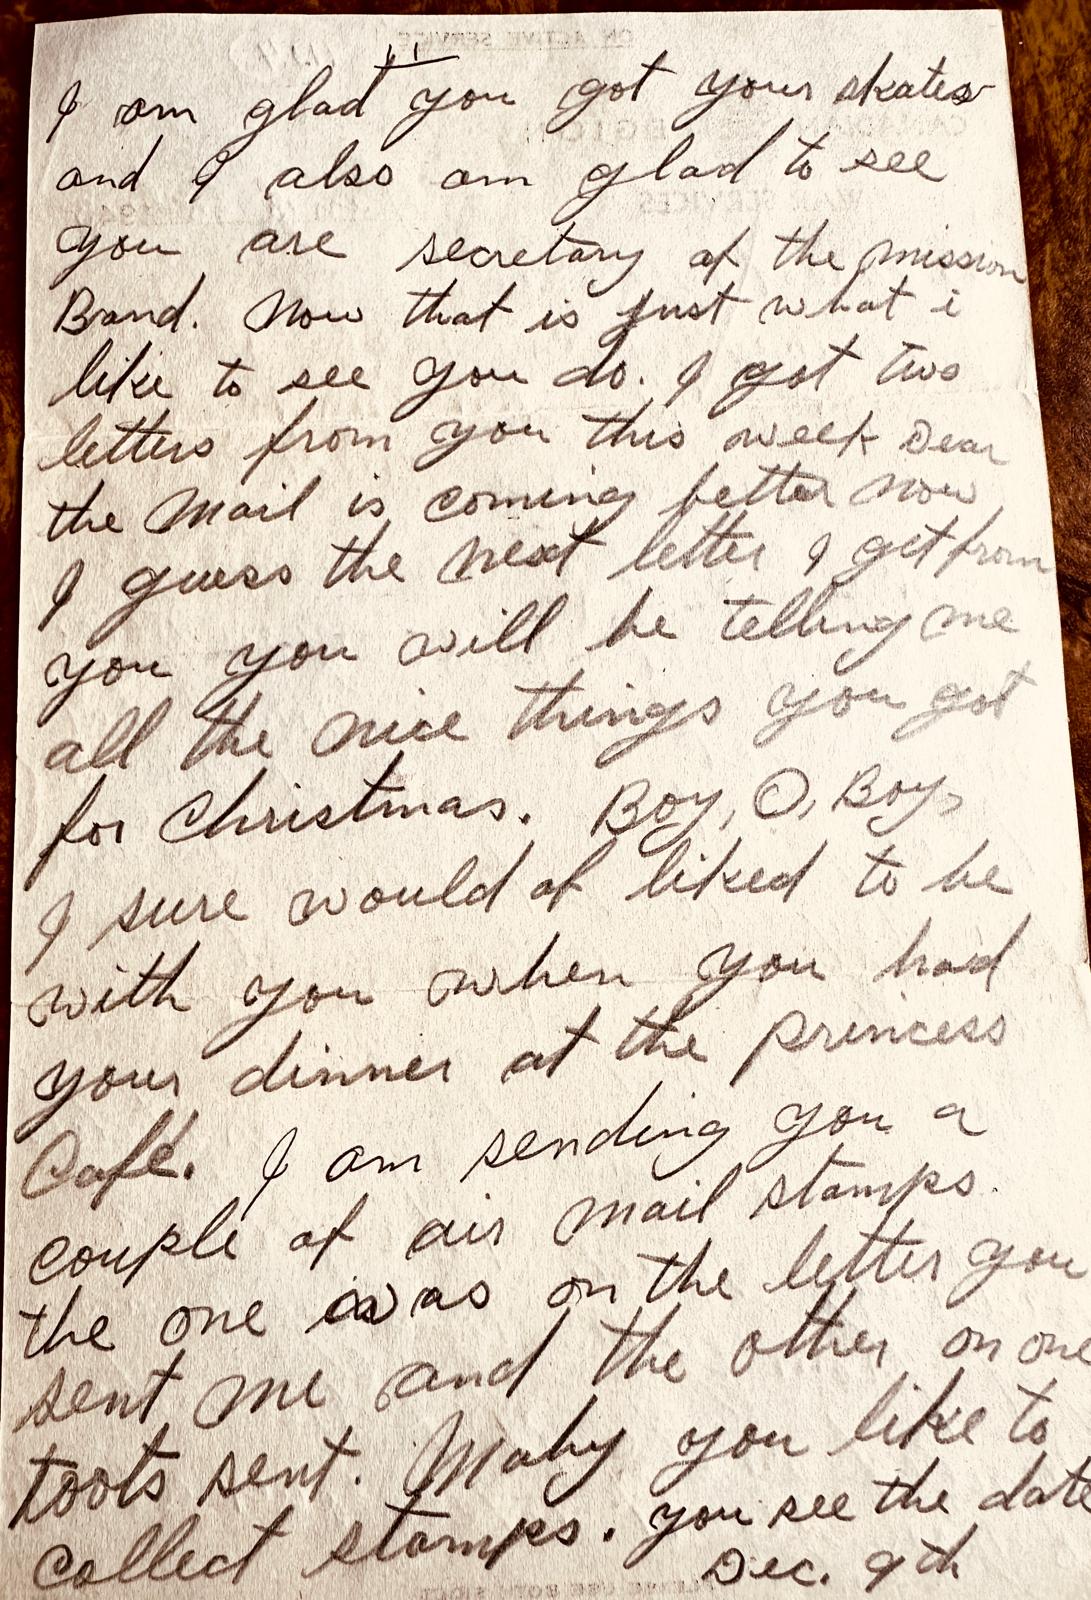 "11"
I am glad you got your skates
and I also am glad to see
you are secretary of the mission
Band. Now that is just what i
like to see you do. I got two
letters from you this week Dear
the Mail is coming better now
I guess the next letter I get from
you you will be telling me
all the nice things you got
for Christmas. Boy, O, Boy,
I sure would of liked to be
with you when you had
your dinner at the princess
Café. I am sending you a
couple of air mail stamps.
the one was on the letter you
sent me and the other on one
toots sent. Maby you like to
collect stamps. you see the date
Dec. 9th